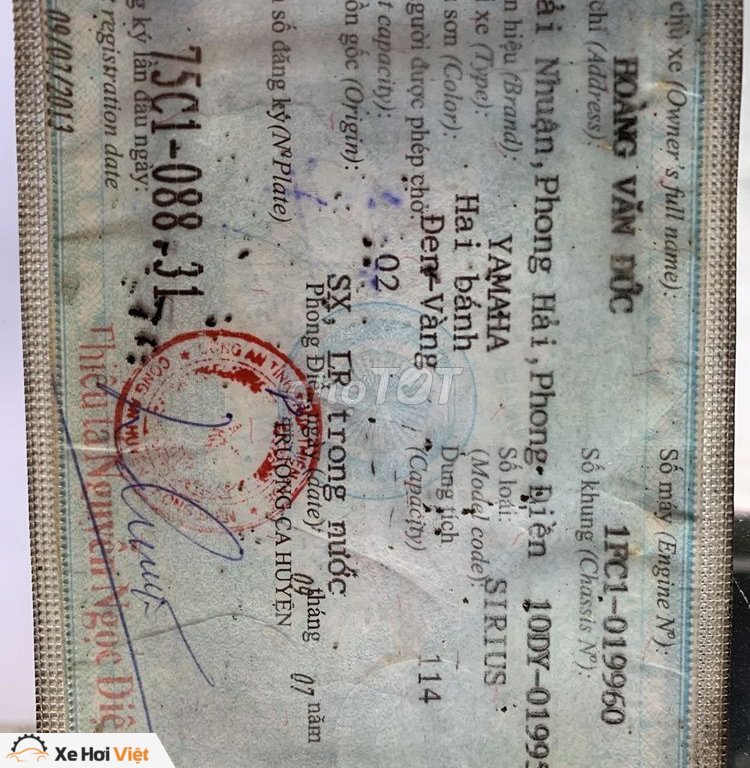 chủ xe (Owner's full name): Số máy (Engine Nº):
HOÀNG VĂN ĐỨC 1FC1-019960
chỉ (Address): Số khung (Chassis Nº):
ải Nhuận, Phong Hải, Phong Điền 1ODY-0199
hiệu (Brand): YAMAHA Số loại: SIRIUS
(Model code)
xe (Type): Hai bánh Dung tích 114
sơn (Color): Đen-Vàng (Capacity)
gười được phép chở: 02
capacity):
ồn gốc (Origin): SX, LR trong nước
Phong Điền ngày (date) 09 tháng 07 năm
TRƯỞNG CA HUYỆN
số đăng ký (Nº Plate)
75C1-088.31
ký lần đầu ngày:
registration date
09/07/2013
Thiếu tá Nguyễn Ngọc Diệ
CÔNG AN TỈNH
otoTỐT
Xe Hơi Việt